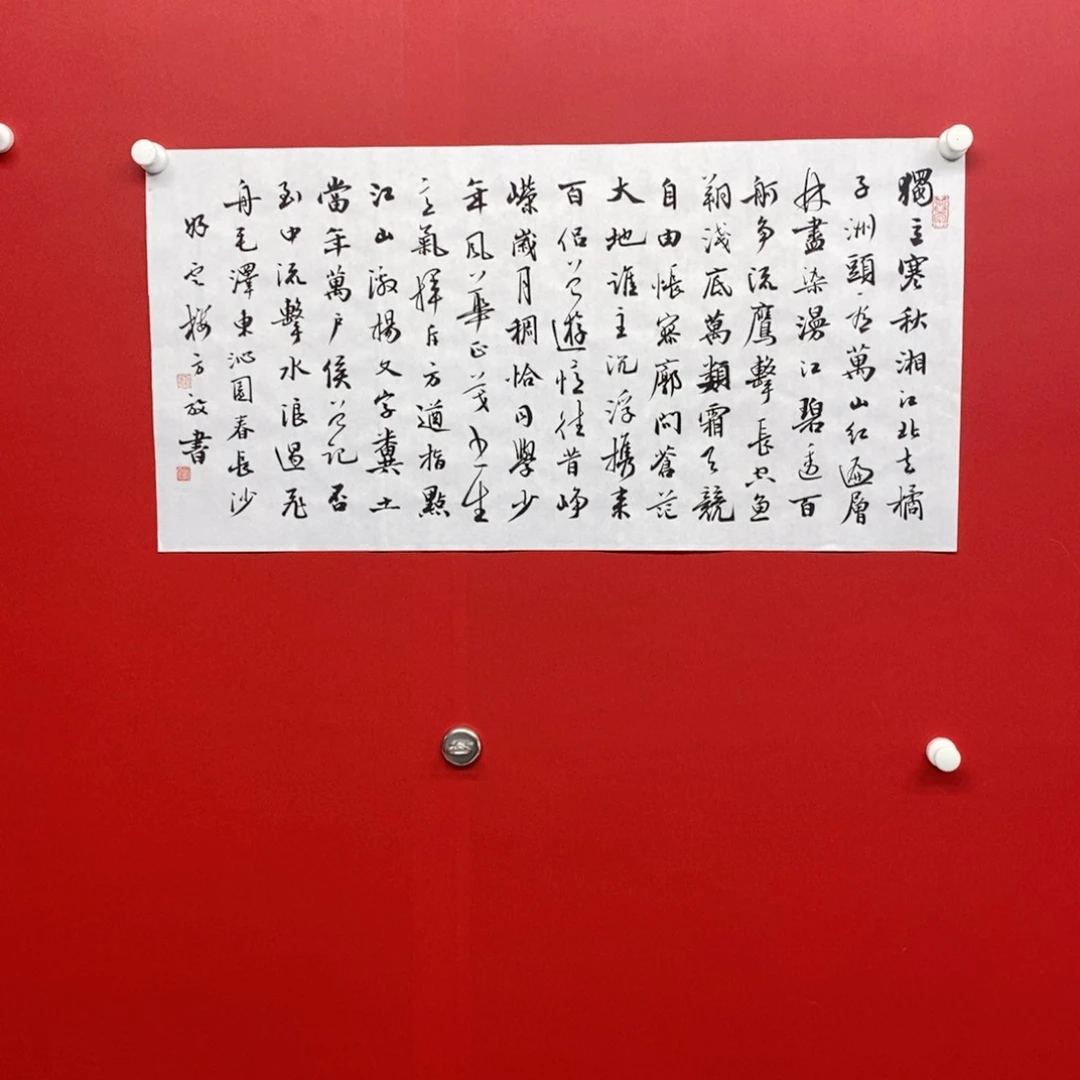 獨立寒秋湘江北去橘
子洲頭看萬山紅遍層
林盡染漫江碧透百
舸爭流鷹擊長空魚
翔淺底萬類霜天競
自由悵寥廓問蒼茫
大地誰主沉浮攜來
百侶曾遊憶往昔崢
嶸歲月稠恰同學少
年風華正茂書生
意氣揮斥方遒指點
江山激揚文字糞土
當年萬戶侯曾記否
到中流擊水浪遏飛
舟毛澤東沁園春長沙
方書